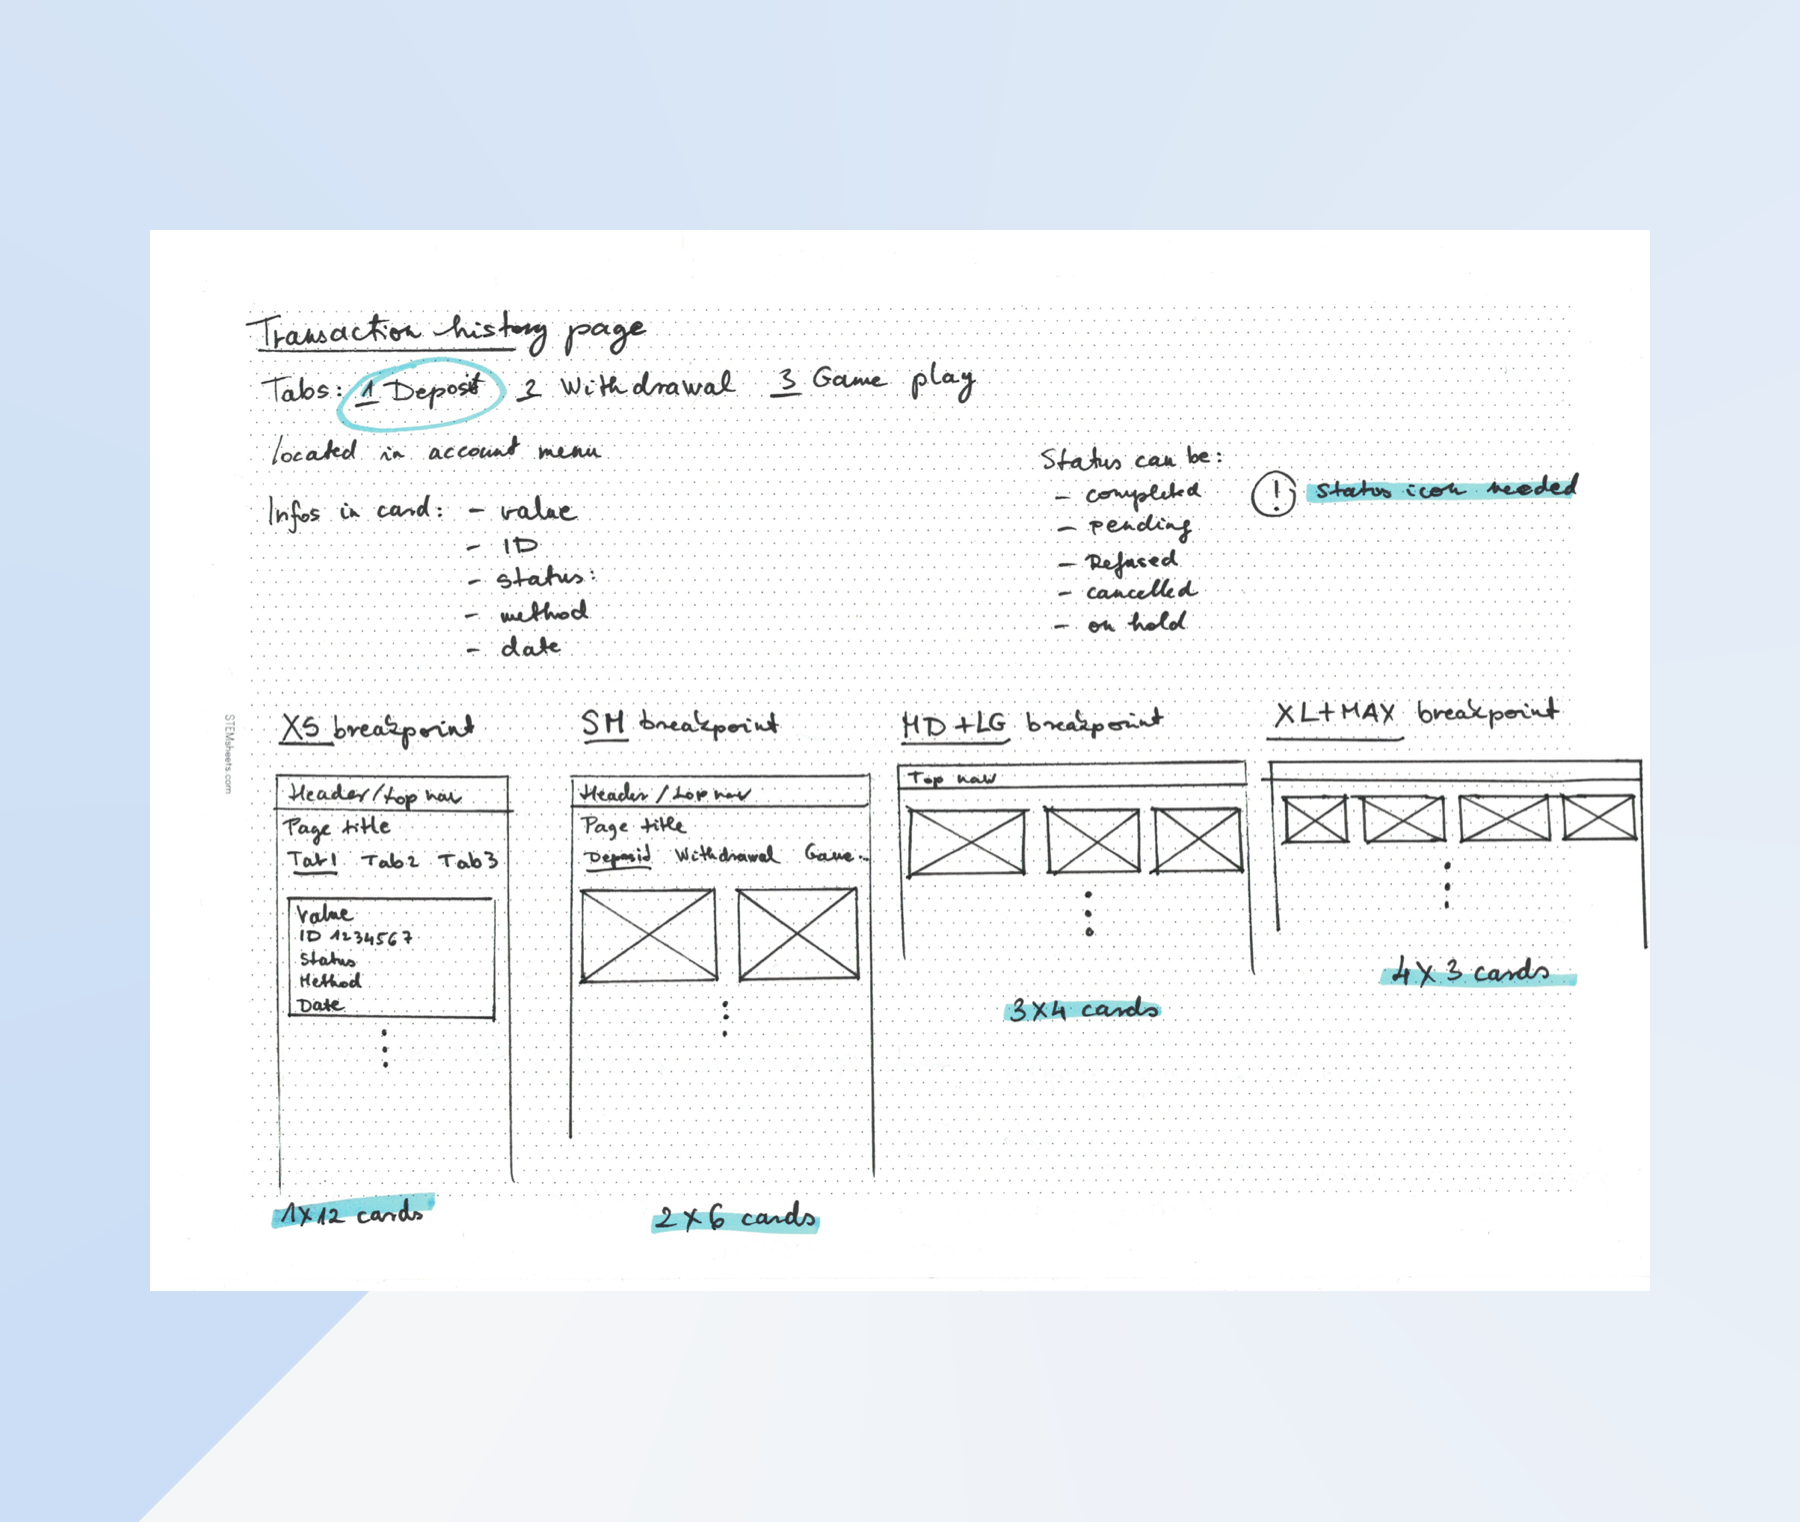 Transaction history page
Tabs: 1 Deposit 2 Withdrawal 3 Game play
located in account menu
Infos in card: - value
- ID
- status:
- method
- date
Status can be:
- completed
- pending
- Refused
- cancelled
- on hold
! Status icon needed
STEMsheets.com
XS breakpoint
Header/top nav
Page title
Tab1 Tab2 Tab3
Value
ID 1234567
Status
Method
Date
1X12 cards
SM breakpoint
Header/top nav
Page title
Deposit Withdrawal Game...
2X6 cards
MD+LG breakpoint
Top nav
3X4 cards
XL+MAX breakpoint
4X3 cards